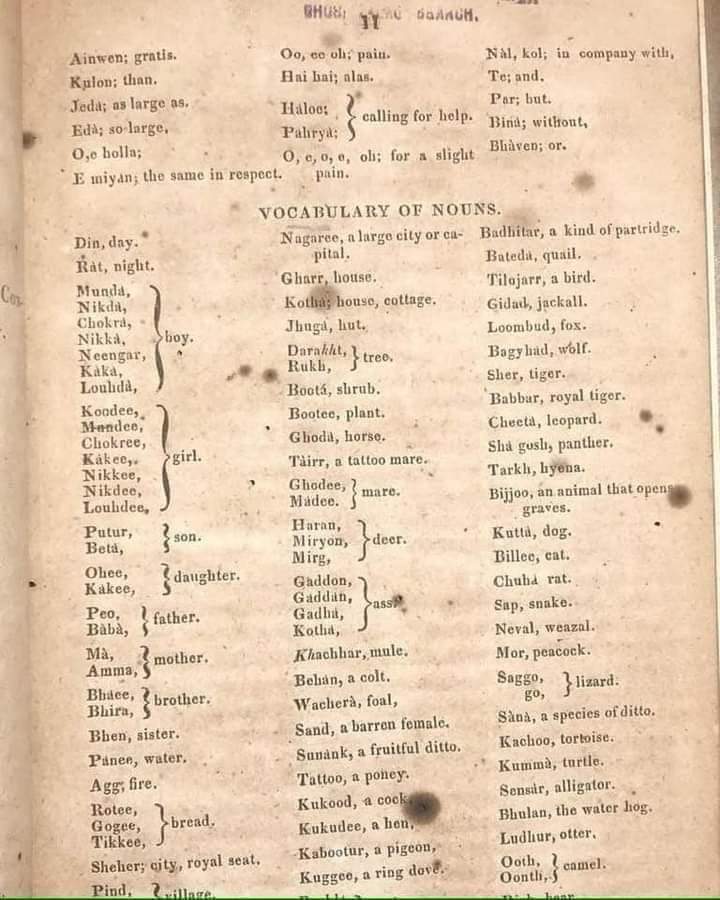 11
Ainwen; gratis.
Kulon; than.
Jedá; as large as.
Edà; so large,
O,e holla;
E miyán; the same in respect.
Oo, ee oh; pain.
Hai hai; alas.
Háloe;
Páhryá; } calling for help.
O, e, o, e, oh; for a slight
pain.
Nàl, kol; in company with,
Te; and.
Par; but.
Biná; without,
Bhàven; or.
VOCABULARY OF NOUNS.
Din, day.
Rát, night.
Mundá,
Nikdá,
Chokrá,
Nikká, } boy.
Neengar,
Káká,
Louhdà,
Koodee,
Mundee,
Chokree,
Kákee, } girl.
Nikkee,
Nikdee,
Louhdee,
Putur,
Betá, } son.
Ohee,
Kákee, } daughter.
Peo,
Bàbà, } father.
Mà,
Amma, } mother.
Bháee,
Bhira, } brother.
Bhen, sister.
Pánee, water.
Agg, fire.
Rotee,
Gogee, } bread.
Tikkee,
Sheher; city, royal seat.
Pind, } village.
Nagaree, a large city or ca-
pital.
Gharr, house.
Kothá; house, cottage.
Jhugá, hut.
Darakht,
Rukh, } tree.
Bootá, shrub.
Bootee, plant.
Ghodá, horse.
Tàirr, a tattoo mare.
Ghodee,
Mádee. } mare.
Haran,
Miryon, } deer.
Mirg,
Gáddon,
Gáddán,
Gadhá, } ass.
Kothá,
Khachhar, mule.
Behán, a colt.
Wacherà, foal,
Sand, a barren female.
Sunánk, a fruitful ditto.
Tattoo, a poney.
Kukood, a cock,
Kukudee, a hen,
Kabootur, a pigeon,
Kuggee, a ring dove.
Badhitar, a kind of partridge.
Batedá, quail.
Tilojarr, a bird.
Gidad, jackall.
Loombud, fox.
Bagyhád, wolf.
Sher, tiger.
Babbar, royal tiger.
Cheetá, leopard.
Shá gosh, panther.
Tarkh, hyena.
Bijjoo, an animal that opens
graves.
Kuttá, dog.
Billee, cat.
Chuhá rat.
Sap, snake.
Neval, weazal.
Mor, peacock.
Saggo,
go, } lizard.
Sànà, a species of ditto.
Kachoo, tortoise.
Kummà, turtle.
Sensàr, alligator.
Bhulan, the water hog.
Ludhur, otter,
Ooth,
Oonth, } camel.